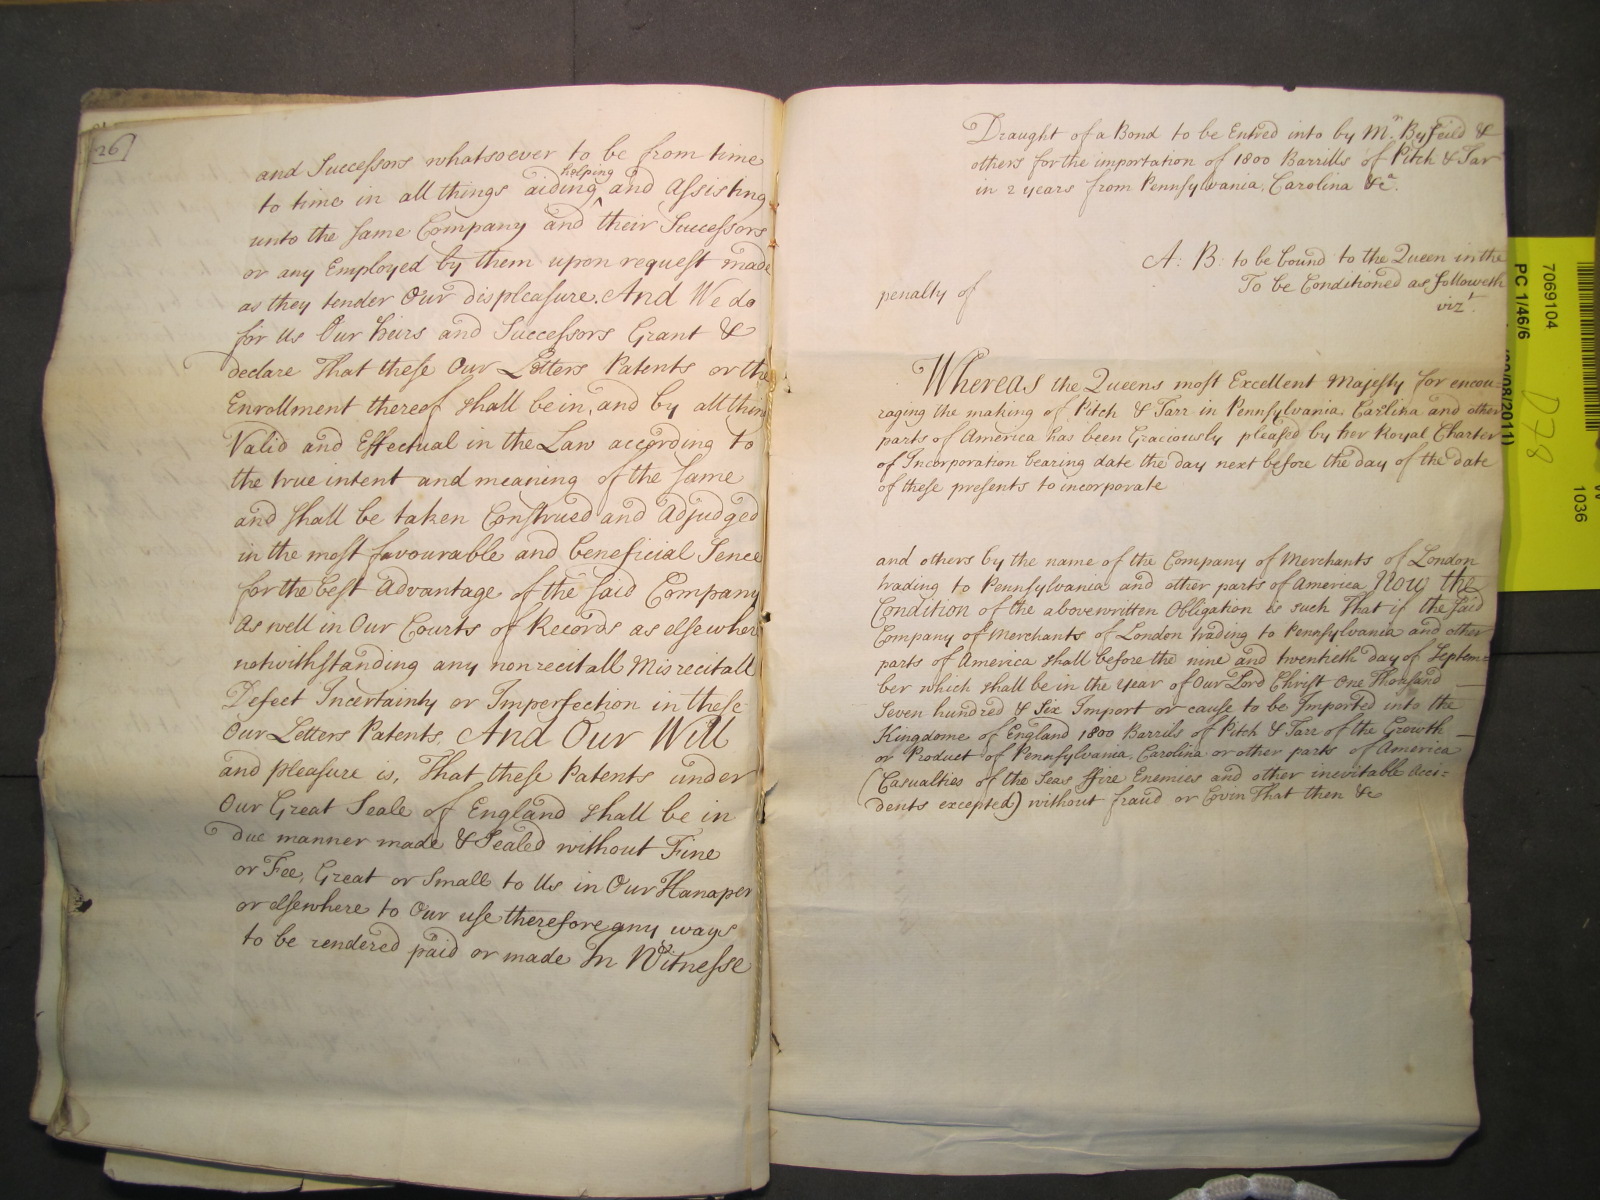 26
and Successors whatsoever to be from time
to time in all things aiding helping and Assisting
unto the same Company and their Successors
or any Employed by them upon request made
as they tender Our displeasure. And We do
for Us Our heirs and Successors Grant &
declare That these Our Letters Patents or the
Enrollment thereof shall be in, and by all thin
Valid and Effectual in the Law according to
the true intent and meaning of the same
and shall be taken Construed and Adjudged
in the most favourable and beneficial Sence
for the best Advantage of the said Company
As well in Our Courts of Records as elsewher
notwithstanding any non recitall Misrecitall
Defect Incertainty or Imperfection in these
Our Letters Patents, And Our Will
and pleasure is, That these Patents under
Our Great Seale of England shall be in
due manner made & Sealed without Fine
or Fee, Great or Small to Us in Our Hanaper
or elsewhere to Our use therefore any ways
to be rendered paid or made In Witnesse
Draught of a Bond to be Entred into by Mr. Byfeild &
others for the importation of 1800 Barrills of Pitch & Tar
in 2 years from Pennsylvania, Carolina &ca.
A: B: to be bound to the Queen in the
penalty of
To be Conditioned as followeth
vizt.
Whereas the Queens most Excellent Majesty for encou=
raging the making of Pitch & Tarr in Pennsylvania Carolina and other
parts of America has been Graciously pleased by her Royal Charter
of Incorporation bearing date the day next before the day of the date
of these presents to incorporate
and others by the name of the Company of Merchants of London
trading to Pennsylvania and other parts of America Now the
Condition of the abovewritten Obligation is such That if the said
Company of Merchants of London trading to Pennsylvania and other
parts of America shall before the nine and twentieth day of Septem=
ber which shall be in the Year of Our Lord Christ One Thousand
Seven hundred & Six Import or cause to be Imported into the
Kingdome of England 1800 Barrils of Pitch & Tarr of the Growth
or Product of Pennsylvania, Carolina or other parts of America
(Casualties of the Seas ffire Enemies and other inevitable Acci=
dents excepted) without fraud or Covin That then &c
7069104
PC 1/46/6
(08/08/2011)
D78
1036